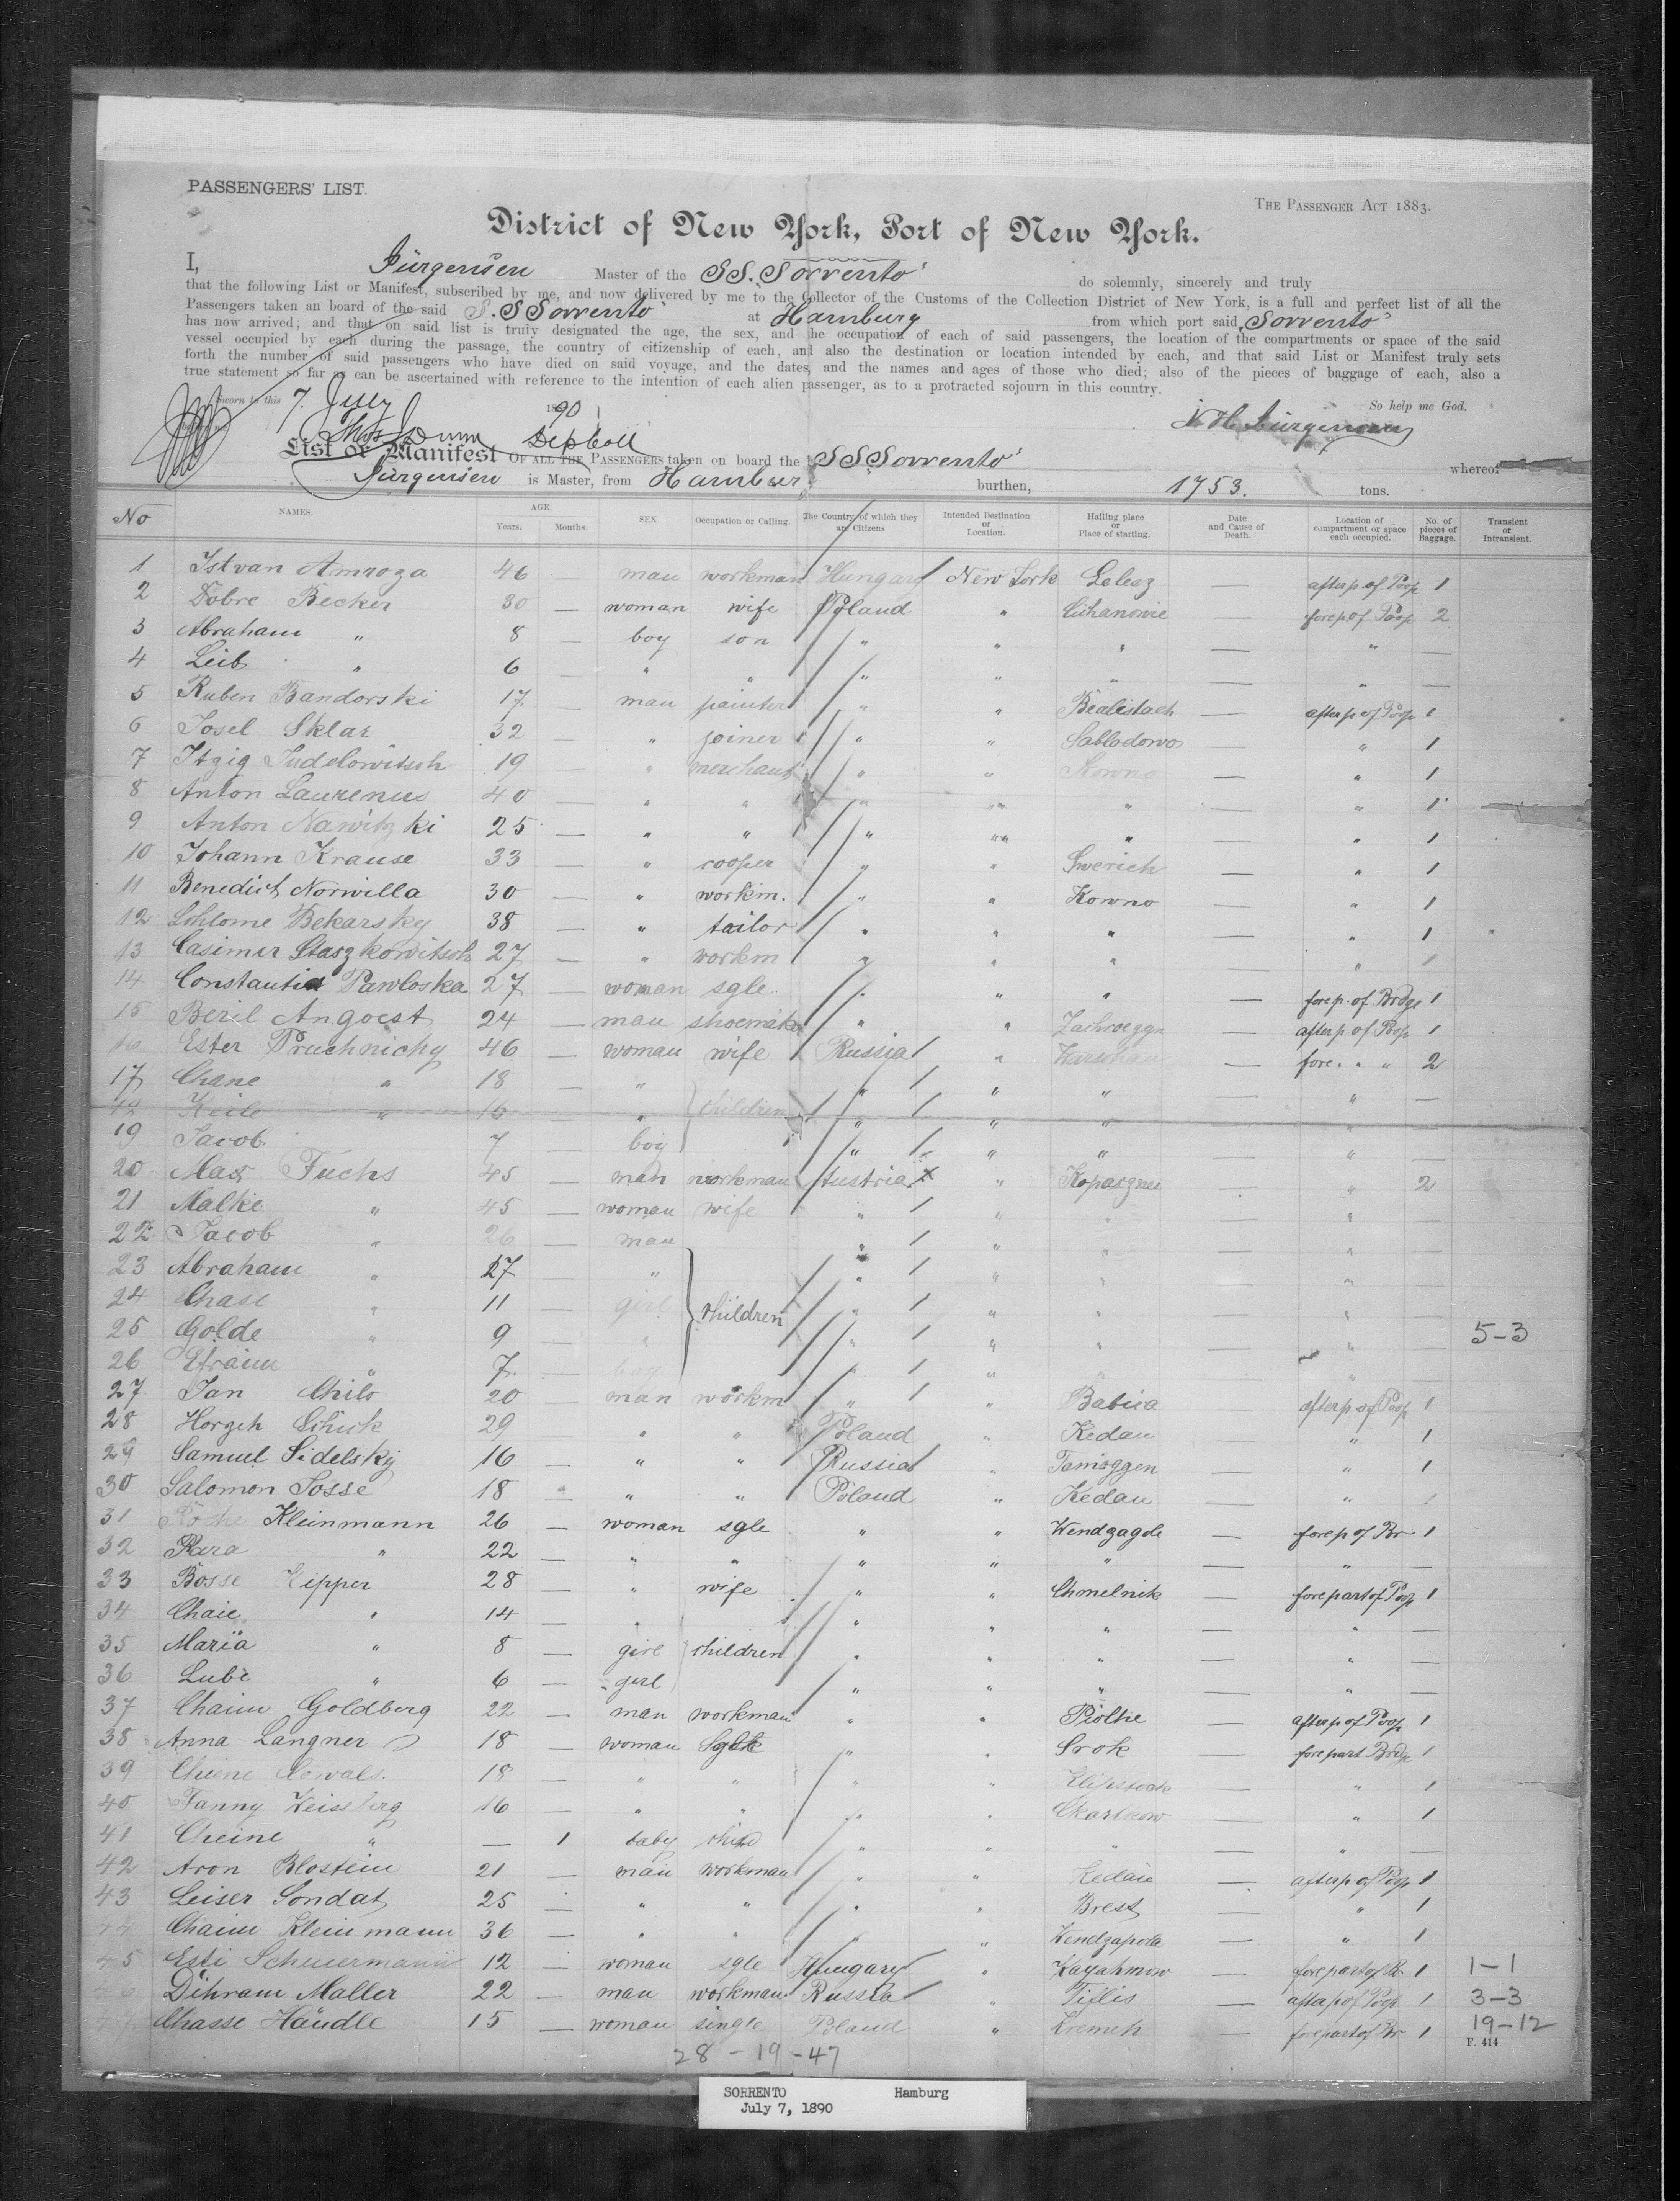 PASSENGERS' LIST.
THE PASSENGER ACT 1883.
District of New York, Port of New York.
I, Jürgensen Master of the SS. Sorrento do solemnly, sincerely and truly
that the following List or Manifest, subscribed by me, and now delivered by me to the Collector of the Customs of the Collection District of New York, is a full and perfect list of all the
Passengers taken an board of the said S.S Sorrento at Hamburg from which port said Sorrento
has now arrived; and that on said list is truly designated the age, the sex, and the occupation of each of said passengers, the location of the compartments or space of the said
vessel occupied by each during the passage, the country of citizenship of each, and also the destination or location intended by each, and that said List or Manifest truly sets
forth the number of said passengers who have died on said voyage, and the dates, and the names and ages of those who died; also of the pieces of baggage of each, also a
true statement so far as can be ascertained with reference to the intention of each alien passenger, as to a protracted sojourn in this country.
Sworn to this 7. July 1890 So help me God.
Thos Dunn Dep Coll
List or Manifest OF ALL THE PASSENGERS taken on board the SS Sorrento whereof
Jürgensen is Master, from Hamburg burthen, 1753. tons.
No NAMES. AGE. Years. Months. SEX Occupation or Calling. The Country of which they are Citizens Intended Destination or Location. Hailing place or Place of starting. Date and Cause of Death. Location of compartment or space each occupied. No. of pieces of Baggage. Transient or Intransient.
1 Istvan Amroza 46 man workman Hungary New York Lelesz — afterp of Poop 1
2 Dobre Becker 30 — woman wife Poland " — forep of Poop 2
3 Abraham " 8 — boy son " " " — " —
4 Leib " 6 — " " " " " — " —
5 Ruben Bandorski 17 — man painter " " Bialistach — afterp of Poop 1
6 Josel Sklar 32 — " joiner " " Sabladowo — " 1
7 Itzig Judelowitsch 19 — " merchant " " Kowno — " 1
8 Anton Laurenus 40 — " " " " " — " 1
9 Anton Nawitzki 25 — " " " " " — " 1
10 Johann Krause 33 — " cooper " " Swerich — " 1
11 Benedict Norwilla 30 — " workm. " " Kowno — " 1
12 Schlome Bekarsky 38 — " tailor " " " — " 1
13 Casimir Staszkowitsch 27 — " workm " " " — " 1
14 Constantia Pawloska 27 — woman sgle. " " " — forep. of Brdge 1
15 Beril Angoest 24 — man shoemak " " — afterp of Poop 1
16 Ester Pruchnichy 46 — woman wife Russia " Warschau — fore. " " 2
17 Chane " 18 — " children " " " — " —
18 Keile " 16 " " " " "
19 Jacob 7 — boy " " " — " —
20 Max Fuchs 45 — man workman Austria " — " 2
21 Malke " 45 — woman wife " " " — " —
22 Jacob " 26 — man " " " — " —
23 Abraham " 27 — " " " " — " —
24 Chase " 11 — girl children " " " — " —
25 Golde " 9 — " " " " — " — 5-3
26 Efraim " 7 — boy " " " — " —
27 Jan Chilo 20 — man workm " " — afterp of Poop 1
28 29 — " " Poland " Kedau — " 1
29 Samuel Sidelsky 16 — " " Russia " — " 1
30 Salomon Josse 18 " " Poland " Kedau — " 1
31 Kleinmann 26 — woman sgle " " Wendzagole — forep of Br 1
32 " 22 — " " " " " — " —
33 Bosse 28 — " wife " " Chmelnik — forepart of Poop 1
34 Chaie " 14 — " " " " — " —
35 Maria " 8 — girl children " " " — " —
36 Lube " 6 — " girl " " " — " —
37 Chaim Goldberg 22 — man workman " " — afterp of Poop 1
38 Anna Langner 18 — woman Sgle " " Srok — forepart Brdg 1
39 18 — " " " " — " 1
40 Fanny Weissberg 16 — " " " " — " 1
41 Cheine " — 1 baby child " " " — " —
42 Aron Blostein 21 — man workman " " Kedau — afterp of Poop 1
43 Leiser Sondat 25 — " " " " Brest — " 1
44 Chaim Kleinmann 36 — " " " " — " 1
45 Esti Scheuermann 12 — woman sgle Hungary " — forepart of Br 1 1-1
46 Dihram Maller 22 — man workman Russia " Tiflis — afterp of Poop 1 3-3
47 Chasse Händle 15 — woman single Poland " — forepart of Br 1 19-12
F. 414
28 - 19 - 47
SORRENTO Hamburg
July 7, 1890